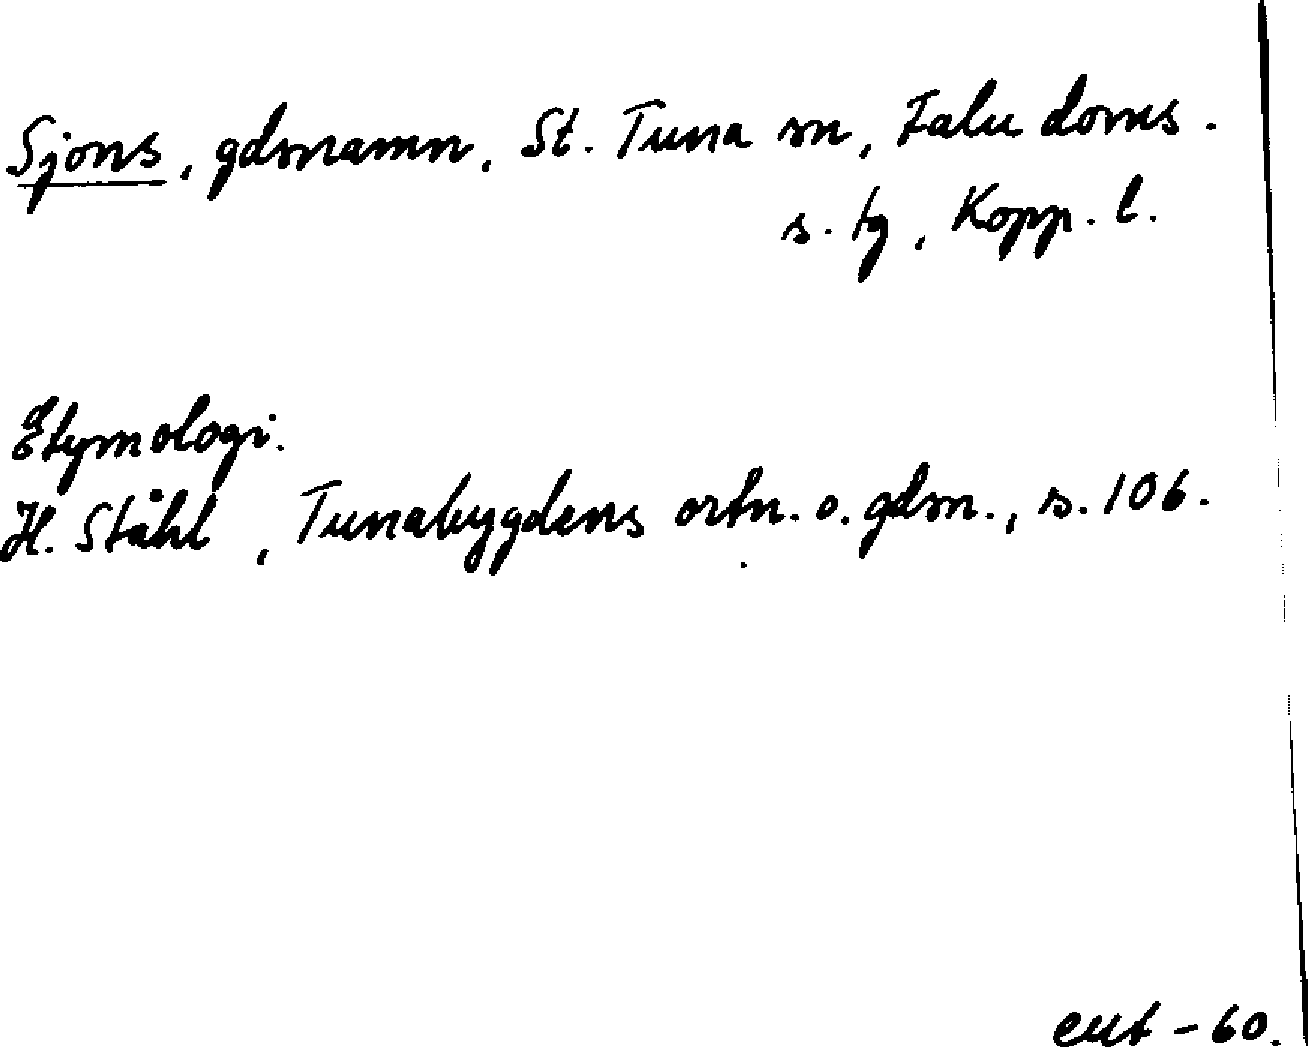 Sjons, gdsnamn, St. Tuna sn, Falu doms.
s. tg, Kopp. l.
Etymologi.
H. Ståhl, Tunabygdens ortn. o. gdsn., s. 106.
exc - 60.